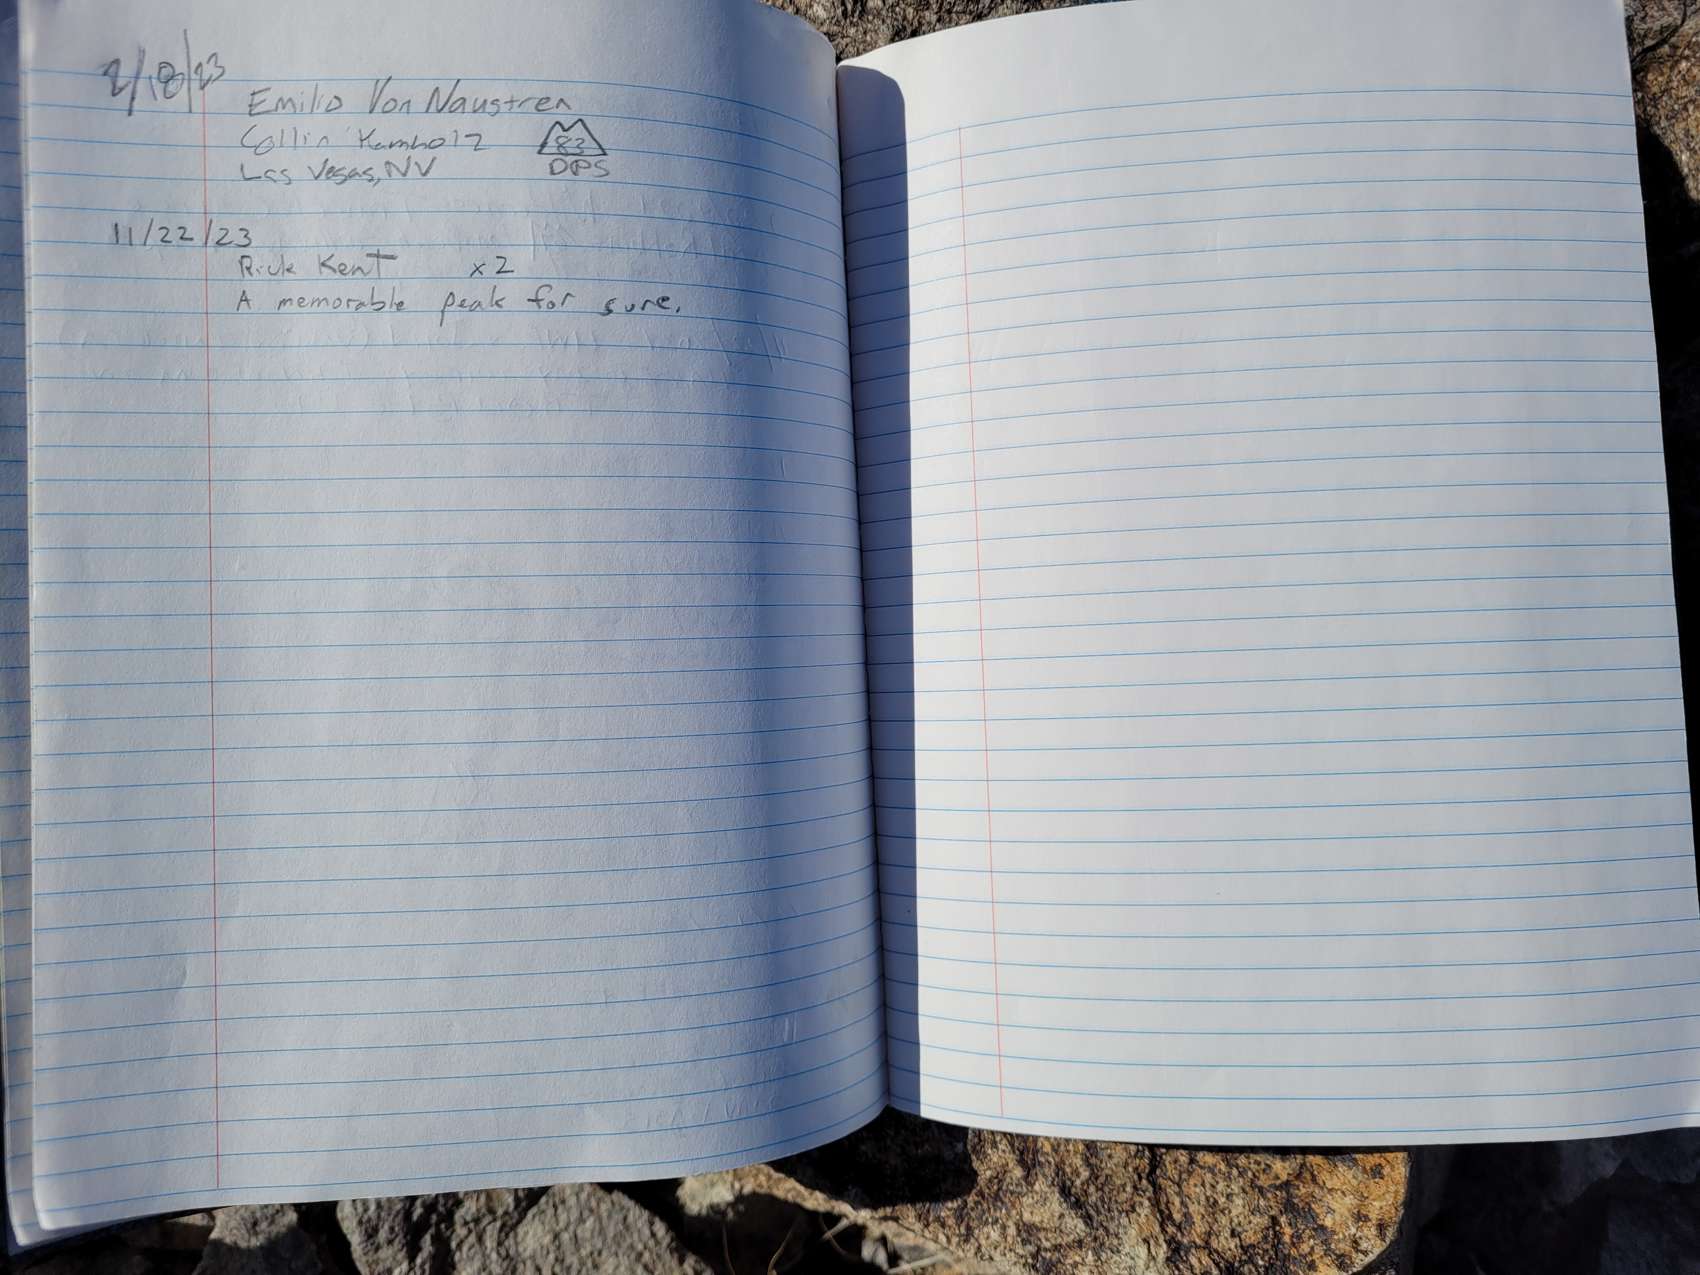 2/18/23
Emilio Von Naustren
Collin Kamholz
Las Vegas, NV
83
DPS
11/22/23
Rick Kent x2
A memorable peak for sure.